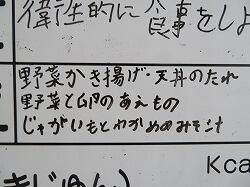 衛生的に食事をしよ
野菜かき揚げ・天丼のたれ
野菜と卵のあえもの
じゃがいもとわかめのみそ汁
Kca
きじゅん)